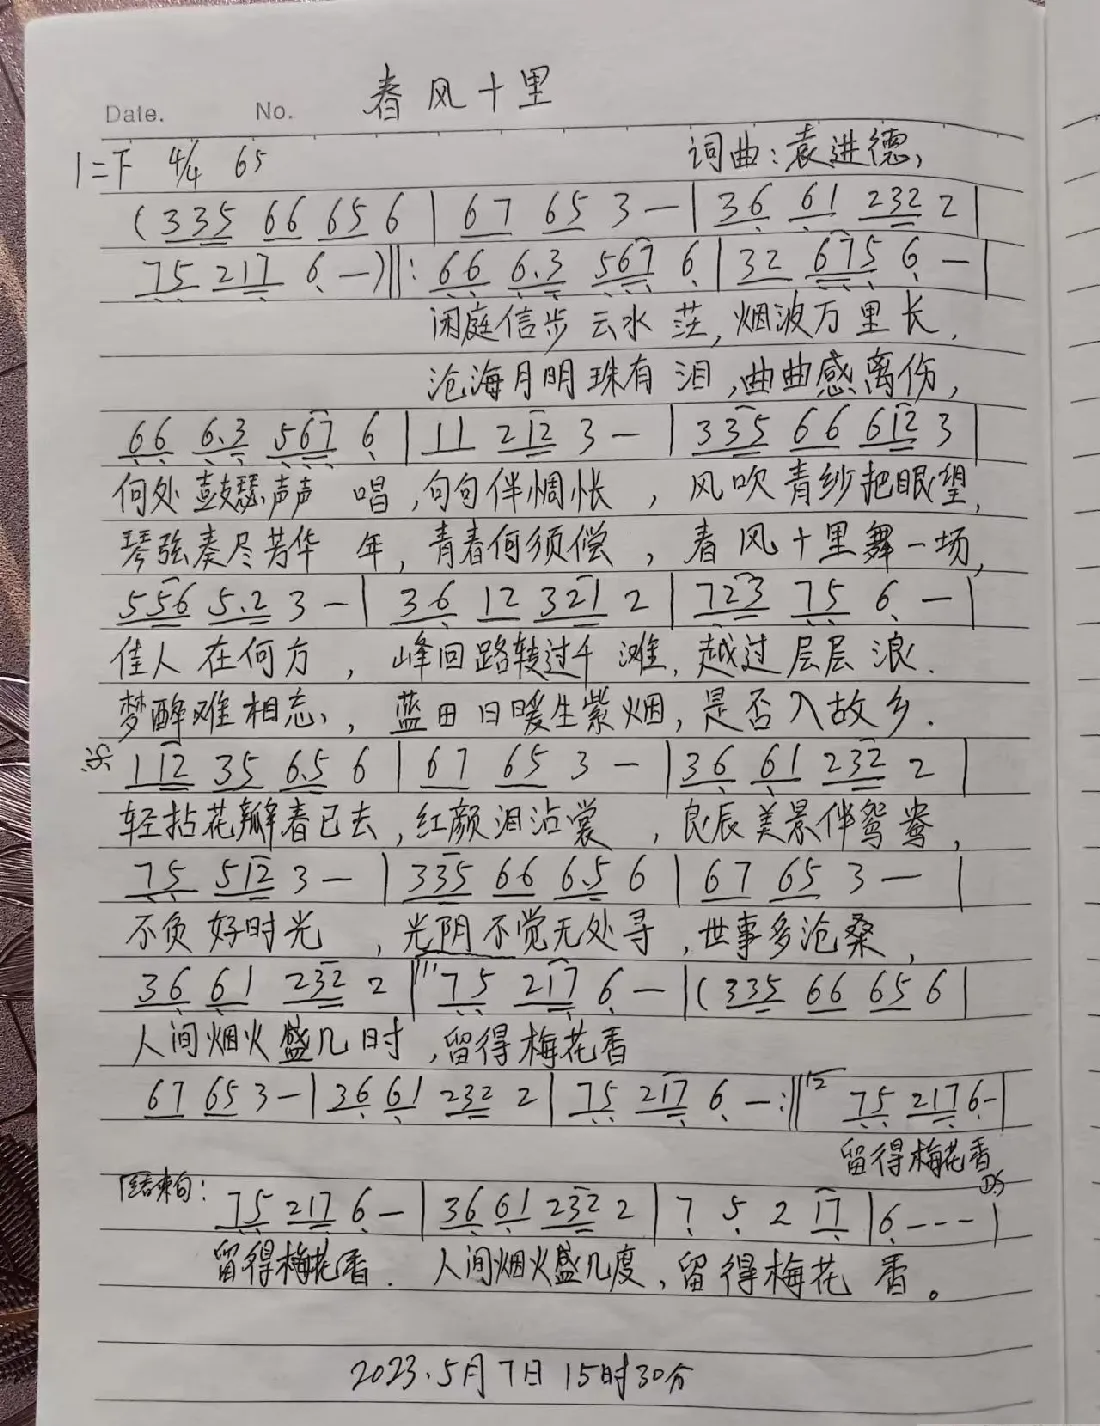 春风十里
Date. No.
1=F 4/4 65 词曲:袁进德
(335 66 65 6 | 67 65 3 — | 36 61 232 2 |
75 217 6 —)‖: 66 6.3 567 6 | 32 675 6 — |
闲庭信步云水茫,烟波万里长,
沧海月明珠有泪,曲曲感离伤,
66 6.3 567 6 | 11 212 3 — | 335 66 612 3 |
何处鼓瑟声声唱,句句伴惆怅,风吹青纱把眼望,
琴弦奏尽芳华年,青春何须偿,春风十里舞一场,
556 5.2 3 — | 36 12 321 2 | 723 75 6 — |
佳人在何方,峰回路转过千滩,越过层层浪.
梦醉难相忘,蓝田日暖生紫烟,是否入故乡.
112 35 6.5 6 | 67 65 3 — | 36 61 232 2 |
轻拈花瓣春已去,红颜泪沾裳,良辰美景伴鸳鸯,
75 512 3 — | 335 66 6.5 6 | 67 65 3 — |
不负好时光,光阴不觉无处寻,世事多沧桑,
36 61 232 2 | 75 217 6 — | (335 66 65 6 |
人间烟火盛几时,留得梅花香
67 65 3 — | 36 61 232 2 | 75 217 6 — :‖ 75 217 6 - |
留得梅花香
DS
结束句: 75 217 6 — | 36 61 232 2 | 7 5 2 17 | 6 - - - |
留得梅花香. 人间烟火盛几度,留得梅花香。
2023.5月7日15时30分